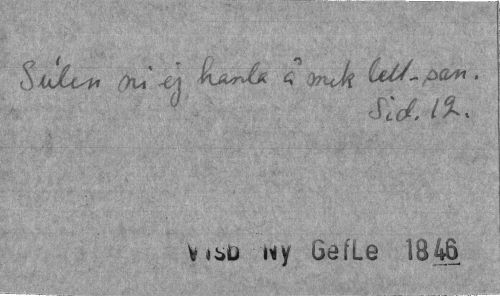 Sulen ni ej hanla å mek lell-san.
Sid. 12.
Visb Ny Gefle 1846